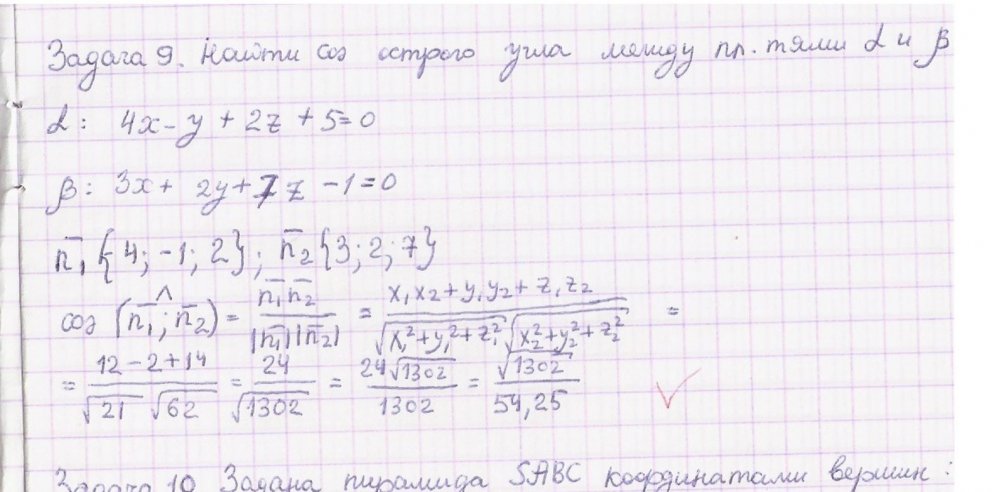 Задача 9. Найти cos острого угла между пл.тями α и β
α: 4x - y + 2z + 5 = 0
β: 3x + 2y + 7z - 1 = 0
n̄₁ {4; -1; 2}; n̄₂ {3; 2; 7}
cos (n̄₁ ^; n̄₂) = n̄₁ n̄₂ / |n̄₁| |n̄₂| = x₁x₂ + y₁y₂ + z₁z₂ / √x₁² + y₁² + z₁² √x₂² + y₂² + z₂² =
= 12 - 2 + 14 / √21 √62 = 24 / √1302 = 24√1302 / 1302 = √1302 / 54,25
Задача 10. Задана пирамида SABC координатами вершин: